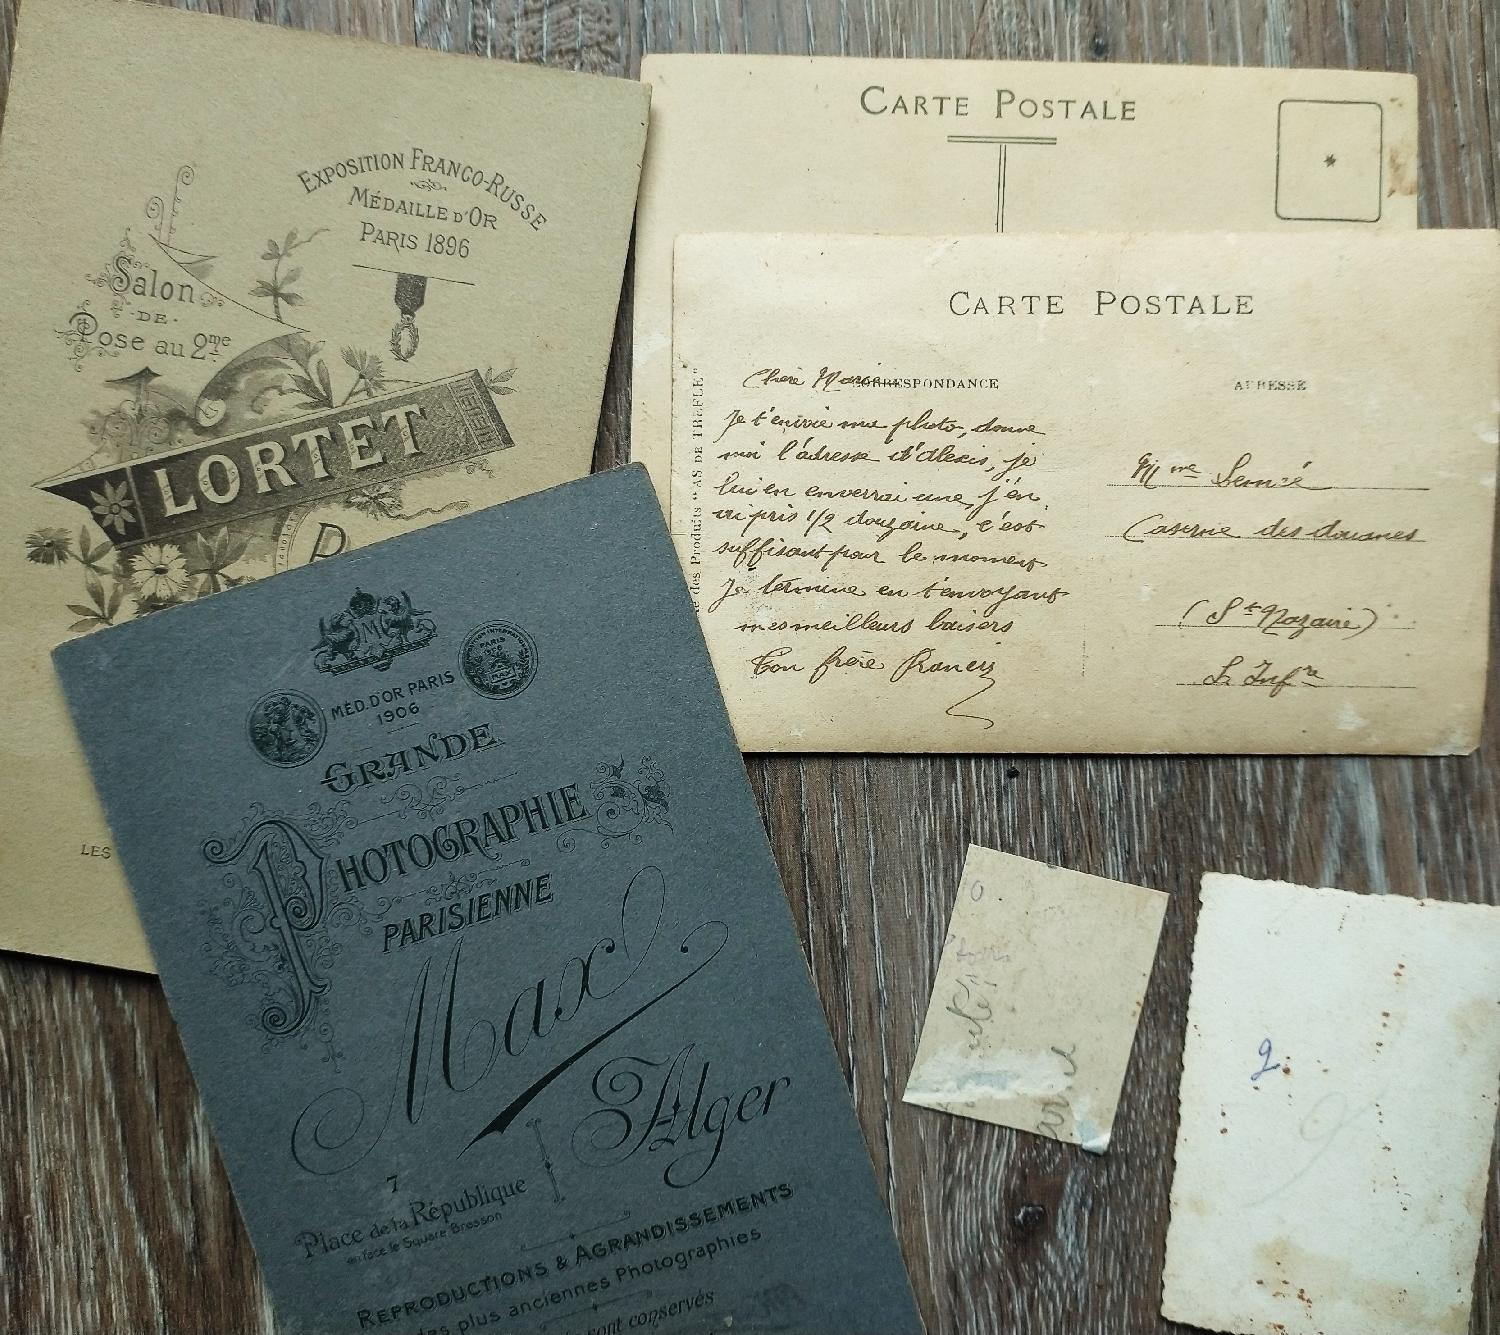 EXPOSITION FRANCO-RUSSE
MÉDAILLE D'OR
PARIS 1896
Salon
DE
Pose au 2me
LORTET
LES
MÉD. D'OR PARIS
1906
GRANDE
PHOTOGRAPHIE
PARISIENNE
Max
Alger
7
Place de la République
en face le Square Bresson
REPRODUCTIONS & AGRANDISSEMENTS
des plus anciennes Photographies
sont conservés
CARTE POSTALE
CARTE POSTALE
des Produits "AS DE TRÈFLE"
CORRESPONDANCE
Chère Marie
Je t'envoie ma photo, donne
moi l'adresse d'Alexis, je
lui en enverrai une, j'en
ai pris 1/2 douzaine, c'est
suffisant pour le moment
Je termine en t'envoyant
mes meilleurs baisers
Ton frère Francis
ADRESSE
Mme
Caserne des douanes
(St Nazaire)
L. Infre
9